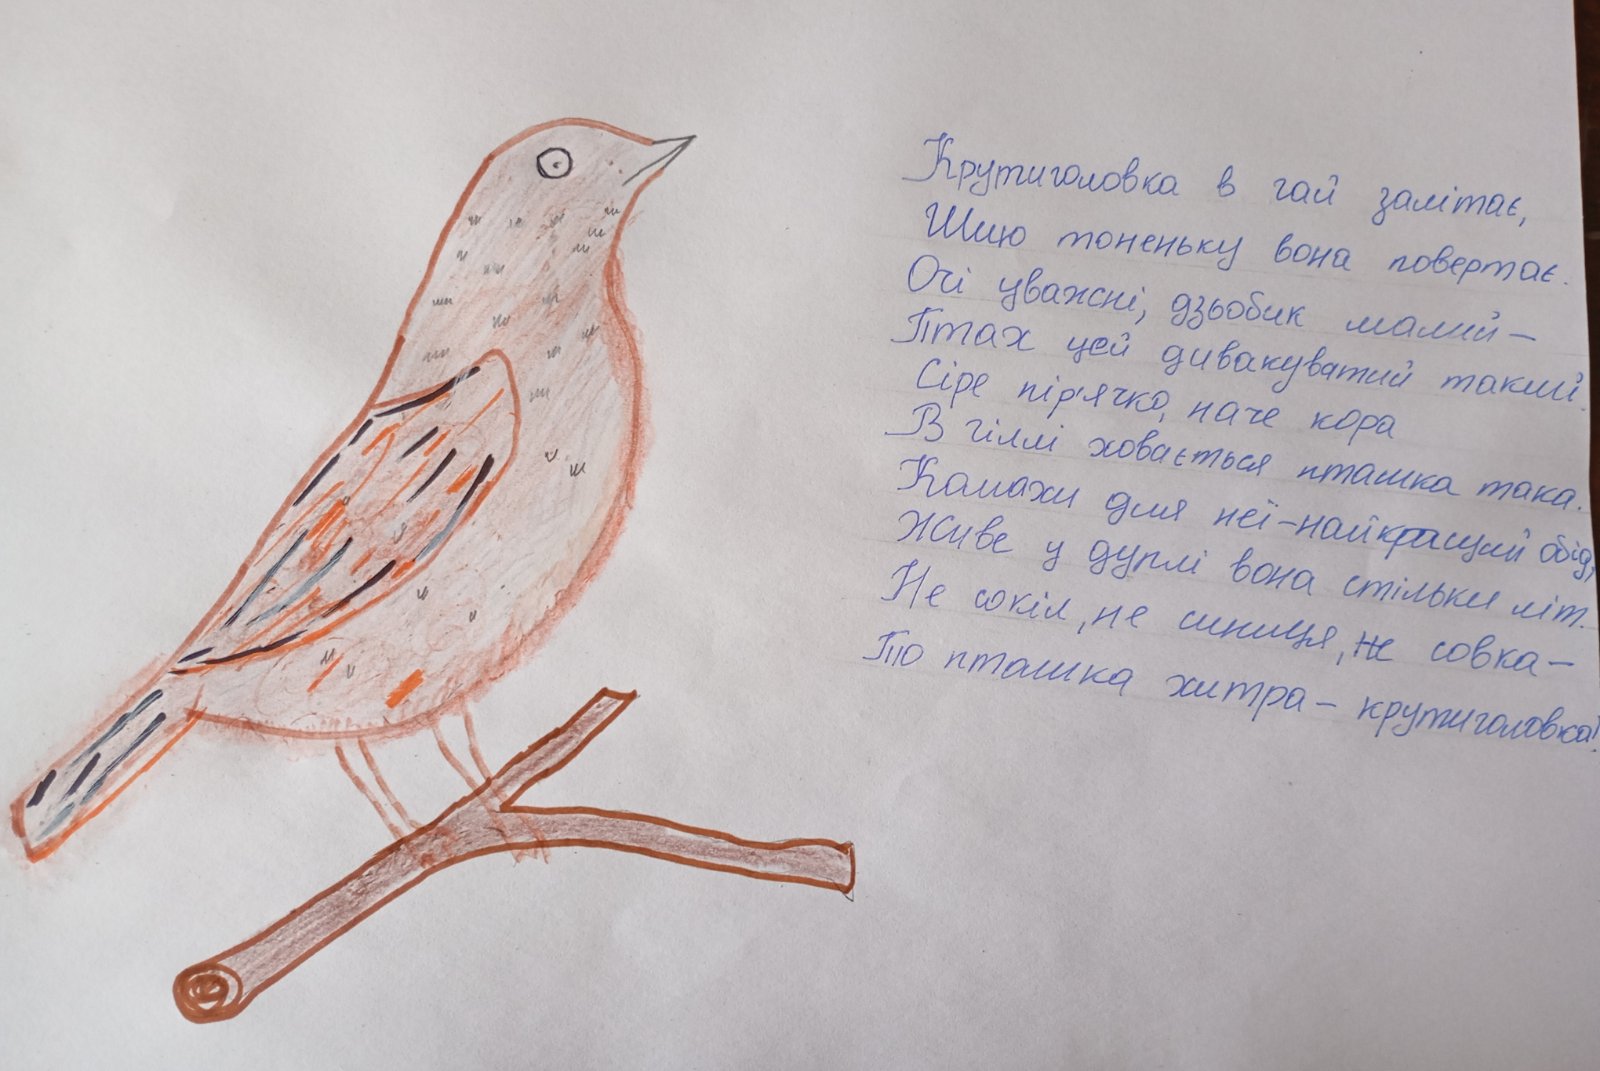 Крутиголовка в гай залітає,
Шию тоненьку вона повертає.
Очі уважні, дзьобик малий –
Птах цей дивакуватий такий.
Сіре пір'ячко, наче кора
В гіллі ховається пташка така.
Комахи для неї – найкращий обід,
Живе у дуплі вона стільки літ.
Не сокіл, не синиця, не совка –
То пташка хитра – крутиголовка!